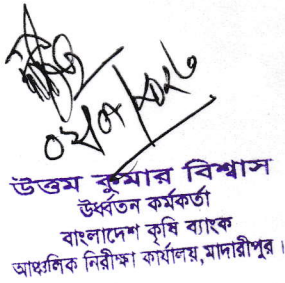 উত্তম কুমার বিশ্বাস
উর্ধ্বতন কর্মকর্তা
বাংলাদেশ কৃষি ব্যাংক
আঞ্চলিক নিরীক্ষা কার্যালয়,মাদারীপুর।